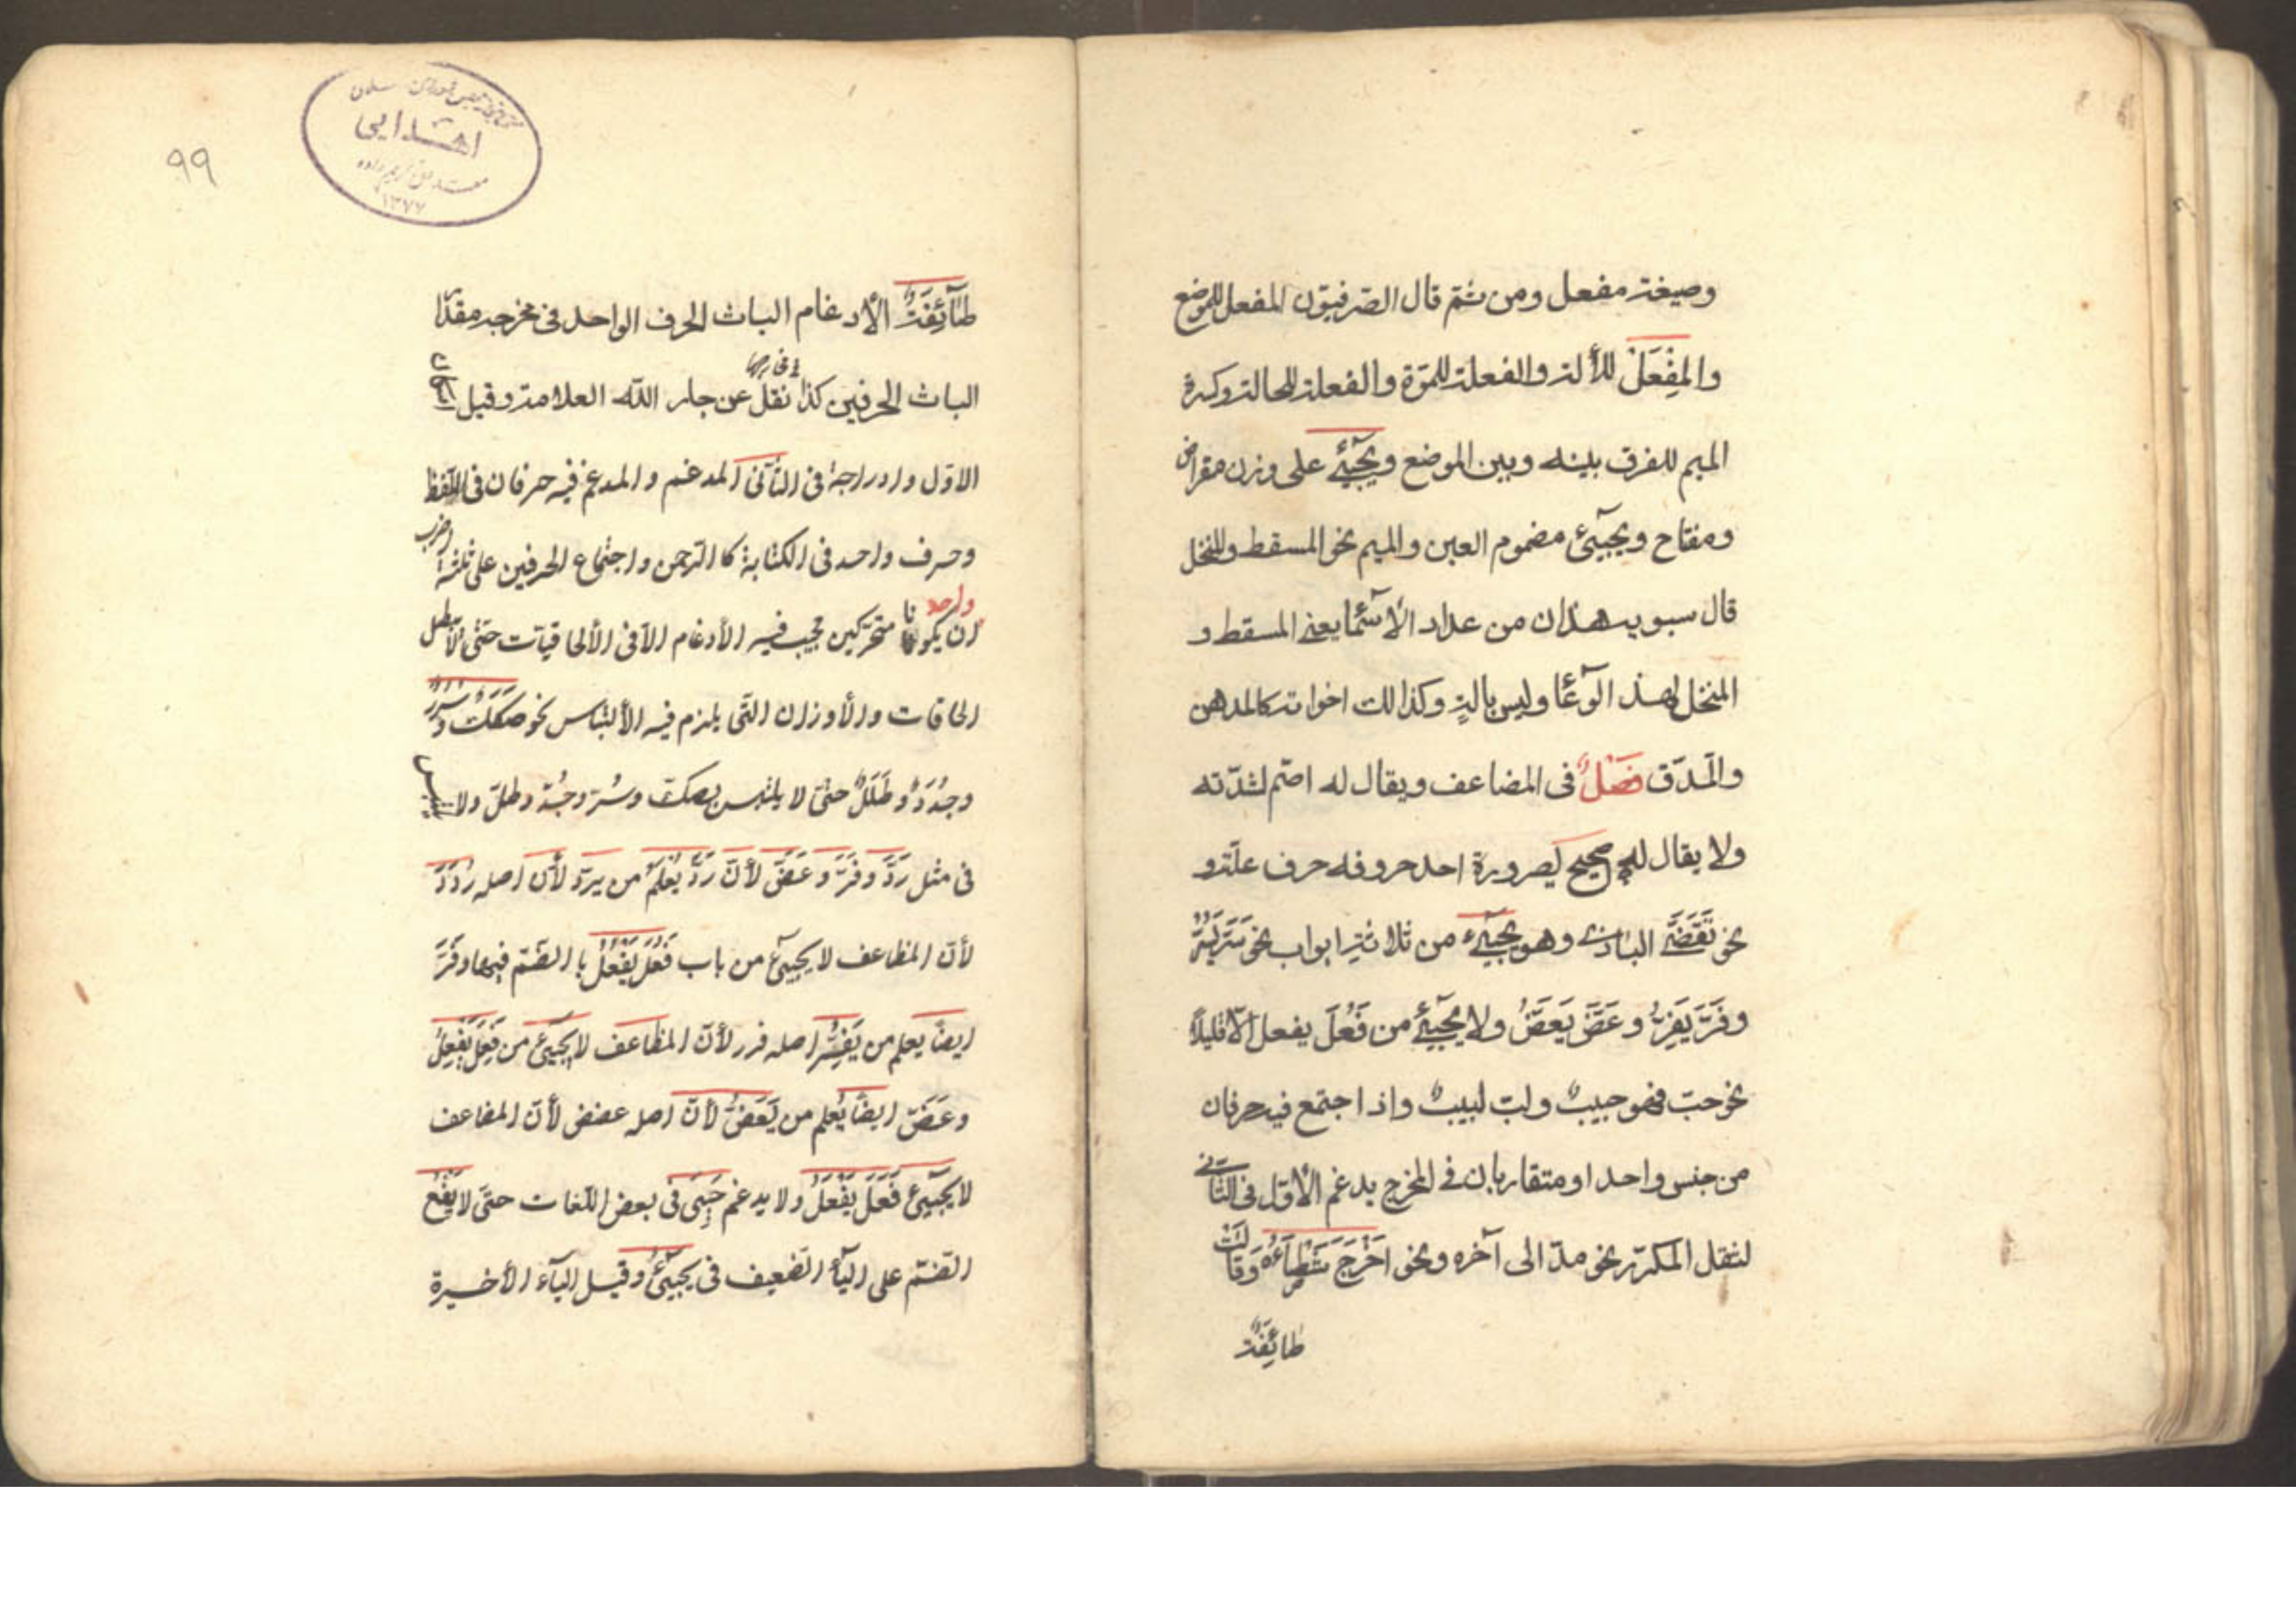 وصيغة مفعل ومن ثمّ قال الصّرفيّون المفعل للموضع
والمِفْعَلْ للألة والفعلة للمرّة والفعلة للحالة وكسرة
الميم للفرق بينه وبين الموضع ويجيئ على وزن مقراض
ومفتاح ويجيئ مضموم العين والميم نحو المسقط والمنخل
قال سبويه هذان من عداد الأسمآ يعني المسقط و
المنخل لهذ الوعآ وليس بالة وكذالك اخواته كالمدهن
والمدق فَصْلٌ فى المضاعف ويقال له اصّم لشدّته
ولا يقال له صحيح لصرورة احد حروفه حرف علّة و
نحو تَقَضَّى البازى وهو يجيئ من ثلاثة ابواب نحو سَرَّ يَسُرُّ
وفَرَّ يَفِرُّ وعَضَّ يَعَضُّ ولا يجيئ من فَعُلَ يفعل الّا قليلاً
نحو حبّ فهو حبيبٌ ولبّ لبيبٌ واذا اجتمع فيه حرفان
من جنس واحد او متقاربان فى المخرج يدغم الأوّل فى الثّانى
لثقل المكرّر نحو مدّ الى آخره ونحو اَخْرَجَ شَطْأَهُ وَقَالَتْ
طائِفَةٌ
طَآئِفَةٌ الأدغام الباث الحرف الواحد فى مخرجه مقدّار
الباث الحرفين كذا نقل عن جار اللّه العلامة وقيل
الاوّل وادراجهُ فى الثّانى المدغم والمدغم فيه حرفان فى اللّفظ
وحرف واحد فى الكتابة كا الرّحمن واجتماع الحرفين على ثلثة اضرب
واحد
ان يكونا متحرّكين يجب فيه الأدغام الّا فى الألحاقيّات حتّى لا يبطل
الحاقات والأوزان الّتى يلزم فيه الألتباس نحو صَكَكٌ وسُرُرٌ
وجُدَدٌ وطَلَلٌ حتّى لا يلتبس بصكّ وسُرّ وجُدّ وطلّ ولا يلتبس
فى مثل رَدَّ وفَرَّ وعَضَّ لأنّ رَدَّ يُعْلَمُ من يردّ لأنّ اصله رَدَدَ
لأنّ المظاعف لا يجيئ من باب فَعُلَ يَفْعُلُ با الضّم فيها وفَرَّ
ايضاً يعلم من يَفِرُّ اصله فرر لأنّ المظاعف لا يجيئ من فَعِلَ يَفْعِلُ
وعَضّ ايضاً يُعلم من يَعَضُّ لأنّ اصله عضض لأنّ المضاعف
لا يجيئ فَعَلَ يَفْعَلُ ولا يدغم حَيِىَ فى بعض اللّغات حتّى لا يَقَع
الضّم على اليآء الضّعيف فى يجيئُ وقيل اليآء الأخيرة
اهدايى
۱۳۷۷
۹۹